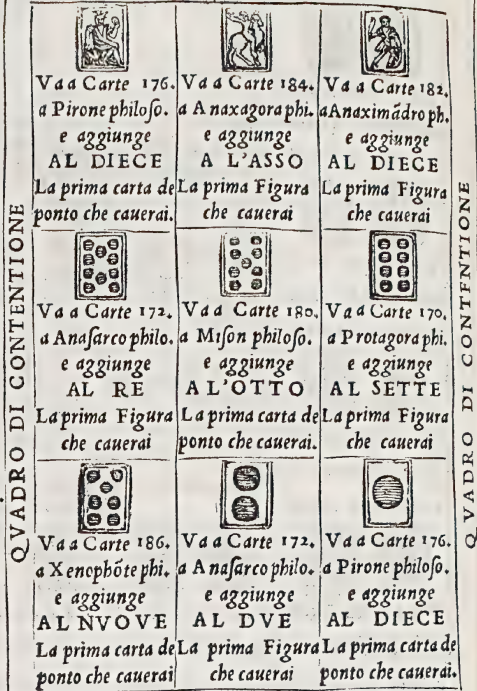 QVADRO DI CONTENTIONE
Va a Carte 176.
a Pirone philoſo.
e aggiunge
AL DIECE
La prima carta de
ponto che cauerai.
Va a Carte 184.
a Anaxagora phi.
e aggiunge
A L'ASSO
La prima Figura
che cauerai
Va a Carte 182.
a Anaximãdro ph.
e aggiunge
AL DIECE
La prima Figura
che cauerai
Va a Carte 172.
a Anaſarco philo.
e aggiunge
AL RE
La prima Figura
che cauerai
Va a Carte 180.
a Miſon philoſo.
e aggiunge
A L'OTTO
La prima carta de
ponto che cauerai.
Va a Carte 170.
a Protagora phi.
e aggiunge
AL SETTE
La prima Figura
che cauerai
Va a Carte 186.
a Xenophõte phi.
e aggiunge
AL NVOVE
La prima carta de
ponto che cauerai
Va a Carte 172.
a Anaſarco philo.
e aggiunge
AL DVE
La prima Figura
che cauerai
Va a Carte 176.
a Pirone philoſo.
e aggiunge
AL DIECE
La prima carta de
ponto che cauerai.
QVADRO DI CONTENTIONE